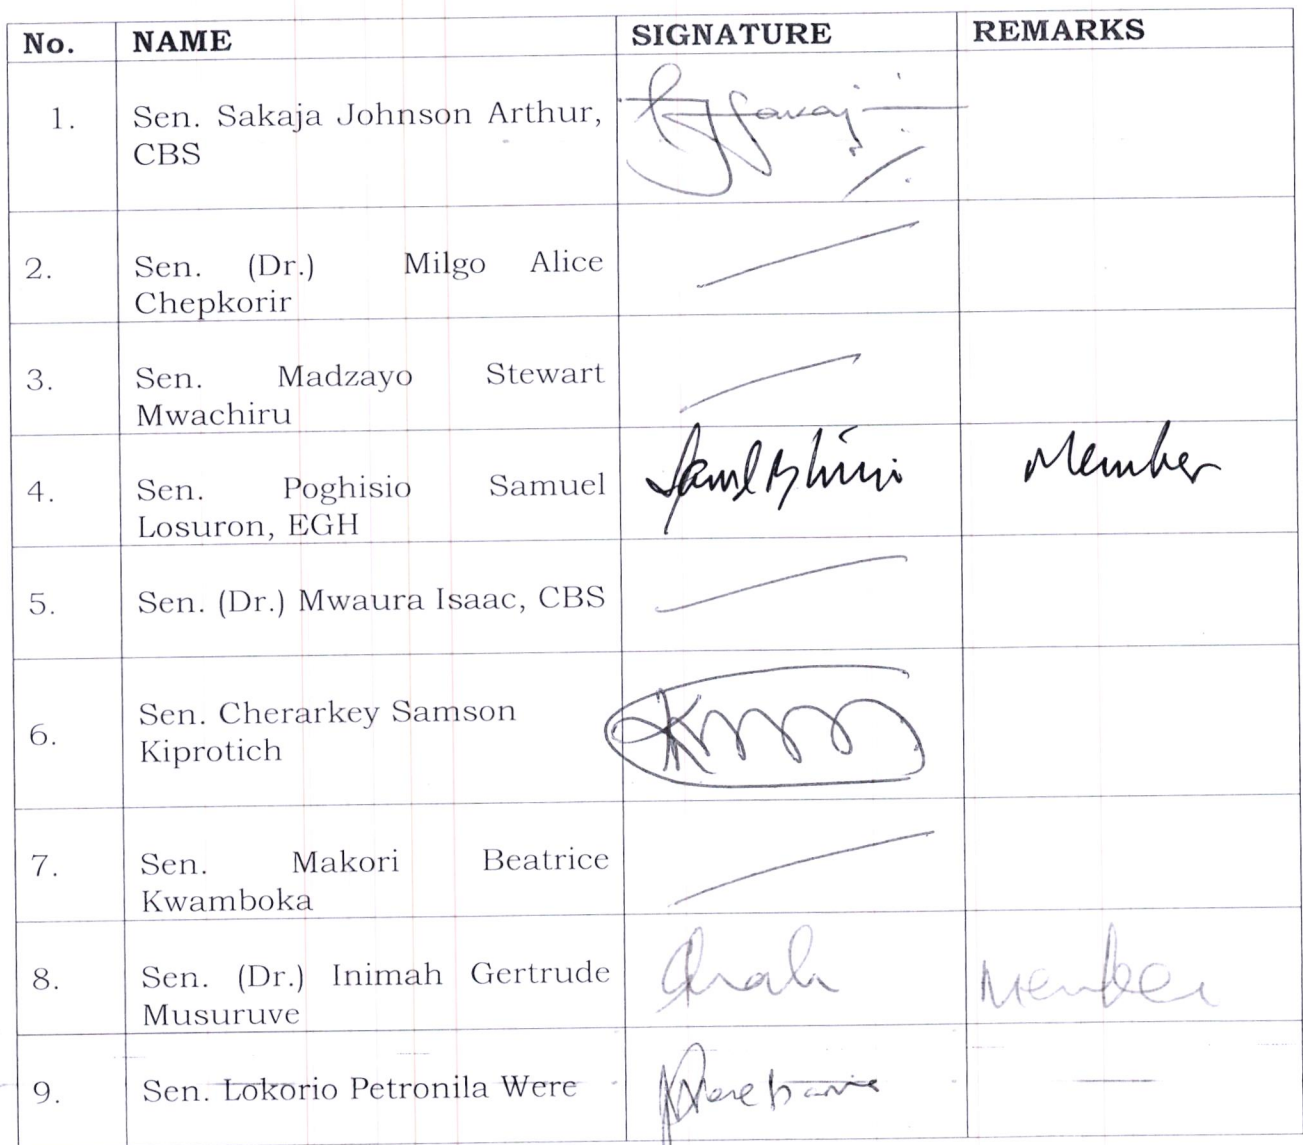 No. NAME SIGNATURE REMARKS
1. Sen. Sakaja Johnson Arthur,
CBS
2. Sen. (Dr.) Milgo Alice
Chepkorir
3. Sen. Madzayo Stewart
Mwachiru
4. Sen. Poghisio Samuel Member
Losuron, EGH
5. Sen. (Dr.) Mwaura Isaac, CBS
6. Sen. Cherarkey Samson
Kiprotich
7. Sen. Makori Beatrice
Kwamboka
8. Sen. (Dr.) Inimah Gertrude Member
Musuruve
9. Sen. Lokorio Petronila Were